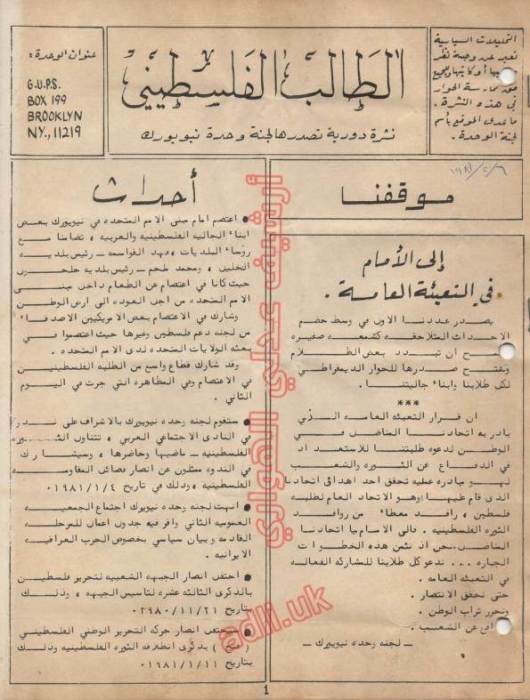 التحليلات السياسية
تعبر عن وجهة نظر
في هذه النشرة.
ما عدى الموقع بأسم
لجنة الوحدة.
الطالب الفلسطيني
نشرة دورية تصدرها لجنة وحدة نيويورك
عنوان الوحدة:
G.U.P.S.
BOX 199
BROOKLYN
NY., 11219
موقفنا
إلى الأمام
في التعبئة العامة.
يصدر عددنا الاول في وسط خضم
الاحداث المتلاحقه كشمعه صغيره
ان تبدد بعض الظلام
وتفتح صدرها للحوار الديمقراطي
لكل طلابنا وابناء جاليتنا.
***
ان قرار التعبئه العامه الذي
بادر به اتحادنا المناضل في
الوطن لدعوه طلبتنا للاستعداد
في الدفاع عن الثوره والشعب
لهو مبادره عمليه تحقق احد اهدافي اتحادنا
الذى قام عليها وهو الاتحاد العام لطلبه
فلسطين، رافد معطاء من روافد
الثوره الفلسطينيه. فالى الامام يا اتحادنا
المناضل.نحن اذ نثمن هذه الخطوات
الجباره ... ندعو كل طلابنا للمشاركه الفعاله
في التعبئه العامه.
حتى نحقق الانتصار.
ونحرر تراب الوطن.
عن الشعب.
- لجنه وحده نيويورك -
أحداث
● اعتصم امام مبنى الامم المتحده في نيويورك بعض
ابناء الجاليه الفلسطينيه والعربيه، تضامنا مع
رؤساء البلديات، فهد القواسمه - رئيس بلديه
الخليل، ومحمد ملحم - رئيس بلديه حلحول
حيث كانا في اعتصام عن الطعام داخل مبنى
الامم المتحده من اجل العوده الى ارض الوطن
وشارك في الاعتصام بعض الامريكيين الاصدقاء
من لجنه دعم فلسطين وغيرها حيث اعتصموا في
بعثه الولايات المتحده لدى الامم المتحده.
وقد شارك قطاع واسع من الطلبه الفلسطينيين
في الاعتصام وفي المظاهره التي جرت في اليوم
الثاني.
● ستقوم لجنه وحده نيويورك بالاشراف على
في النادى الاجتماعي العربي، تتناول الثوره
الفلسطينيه - ماضيها وحاضرها، وسيشارك
في الندوه ممثلون عن انصار فصائل المقاومه
الفلسطينيه، وذلك في تاريخ ١٩٨١/١/٤.
● انهت لجنه وحده نيويورك اجتماع الجمعيه
العموميه الثاني واقر فيه جدول اعمال للمرحله
القادمه وبيان سياسي بخصوص الحرب العراقيه
الايرانيه.
● احتفل انصار الجبهه الشعبيه لتحرير فلسطين
بالذكرى الثالثه عشره لتاسيس الجبهه، وذلك
بتاريخ ١٩٨٠/١١/٢١.
● سيحتفل انصار حركه التحرير الوطني الفلسطيني
بذكرى انطلاقه الثوره الفلسطينيه وذلك
بتاريخ ١٩٨١/١/١١.
1
أرشيف عدلي الهواري
adli.uk